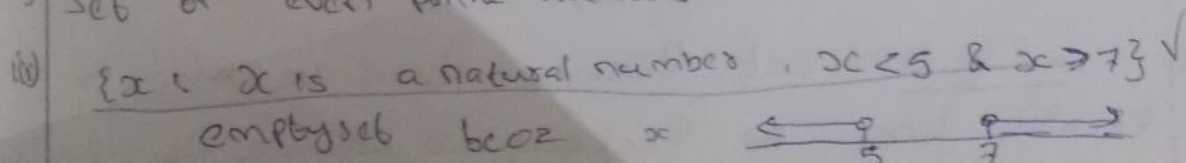 set of every
iii) {x : x is a natural number, x < 5 & x > 7} √
emptyset bcoz x
5 7